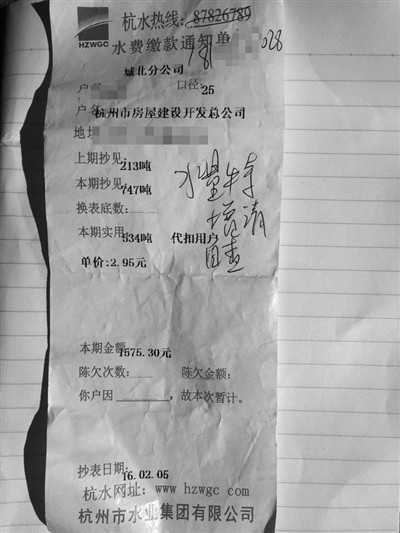 杭水热线：87826789
HZWGC
水费缴款通知单
028
城北分公司
户 口径：25
户名：杭州市房屋建设开发总公司
地址
上期抄见：213吨
本期抄见：747吨
换表底数：
本期实用：534吨 代扣用户
单价：2.95元
水量特
增请
自查
本期金额：1575.30元
陈欠次数： 陈欠金额：
你户因 ，故本次暂计。
抄表日期：16.02.05
杭水网址：www hzwgc com
杭州市水业集团有限公司